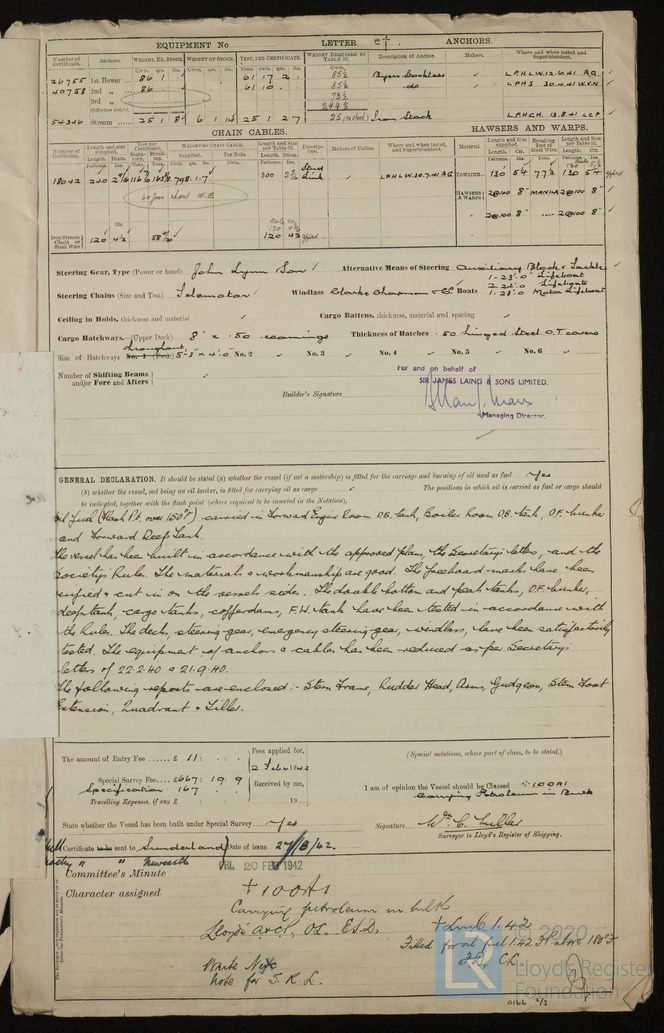 EQUIPMENT No LETTER e†. ANCHORS.
Number of Certificate. Anchors. WEIGHT, EX. STOCK. WEIGHT OF STOCK. TEST, PER CERTIFICATE. WEIGHT REQUIRED BY TABLE 53. Description of Anchor. Makers. Where and when tested and Superintendent.
26755 1st Bower 86 1 61 17 2 85½ Byers Stockless L.P.H.L.W. 12.6.41 A.G.
40758 2nd „ 86 61 10 85½ do L.P.H.S 30.4.41 W.E.N
3rd „ 73½
244½
54346 Stream 25 1 8 6 1 14 25 1 27 25 (ex stock) Iron Stock L.P.H.C.H. 13.8.41 L.C.P
CHAIN CABLES. HAWSERS AND WARPS.
Number of Certificate. Length and size supplied. Test per Certificate. WEIGHT OF CHAIN CABLE. Length and size per Table 53. Description. Makers of Cables. Where and when tested, and Superintendent. Material. Length and Size supplied. Breaking Test of Steel Wire. Length and Size per Table 53.
18042 240 300 Stud Link L.P.H.L.W. 30.7.41 A.G TOWLINE 130 5¼ 77½ 130 5¼
HAWSERS & WARPS 2@100 8" MANILA 2@100 8"
2@100 8" 2@100 8"
Iron Stream Chain or Steel Wire 120 4½ 120 4¾
Steering Gear, Type (Power or hand) John Lynn Son Alternative Means of Steering Auxiliary Block & Tackle
Steering Chains (Size and Test) Telemotor Windlass Clarke Chapman & Co Boats 1-23'.0" Lifeboat
2-22'.0" Lifeboats
1-23'.0" Motor Lifeboat
Ceiling in Holds, thickness and material Cargo Battens, thickness, material and spacing
Cargo Hatchways.—(Upper Deck) 8" x .50 coamings Thickness of Hatches .50 hinged Steel O.T covers
Size of Hatchways No. 1 (Fwd.) 5'-3" x 4'.0" No. 2 No. 3 No. 4 No. 5 No. 6
Number of Shifting Beams and/or Fore and Afters
For and on behalf of
SIR JAMES LAING & SONS LIMITED.
Builder's Signature
Managing Director.
GENERAL DECLARATION. It should be stated (a) whether the vessel (if not a motorship) is fitted for the carriage and burning of oil used as fuel Yes
(b) whether the vessel, not being an oil tanker, is fitted for carrying oil as cargo The positions in which oil is carried as fuel or cargo should
be indicated, together with the flash point (where required to be inserted in the Notation).
Oil fuel (Flash Pt. over 150°F) carried in Forward Engine Room D.B. tank, Boiler Room D.B. tank, O.F. bunker
and Forward Deep Tank.
The vessel has been built in accordance with the approved plans, the Secretary's letters, and the
Society's Rules. The materials & workmanship are good. The freeboard marks have been
verified & cut in on the vessel's side. The double bottom and peak tanks, O.F. bunker,
deep tank, cargo tanks, cofferdams, F.W. tank have been tested in accordance with
the Rules. The decks, steering gear, emergency steering gear, windlass, have been satisfactorily
tested. The equipment of anchors & cables has been reduced as per Secretary's
letters of 22.2.40 & 21.9.40.
The following reports are enclosed:- Stern Frame, Rudder Head, Arms, Gudgeon, Stern Foot
Extension, Quadrant & Tiller.
The amount of Entry Fee £ 11 : :
Fees applied for,
2 Feby 1942
Special Survey Fee £667 : 19 : 9
Specification 167
Travelling Expenses, if any £
Received by me,
19
(Special notations, where part of class, to be stated.)
I am of opinion the Vessel should be Classed +100A1
Carrying Petroleum in Bulk
State whether the Vessel has been built under Special Survey Yes
Signature Wm C. Miller
Surveyor to Lloyd's Register of Shipping.
Certificate to be sent to Sunderland Date of issue 27/3/42.
" " Newcastle
FRI. 20 FEB 1942
Committee's Minute
Character assigned +100A1
Carrying petroleum in bulk
Lloyd's A&CP. OL. ESD.
+LMC 1.42
Fitted for oil fuel 1.42 F.P. above 150°F
CL.
Write
Note for S.R.L.
© 2020
LR
Lloyd's Register
Foundation
0166 2/2